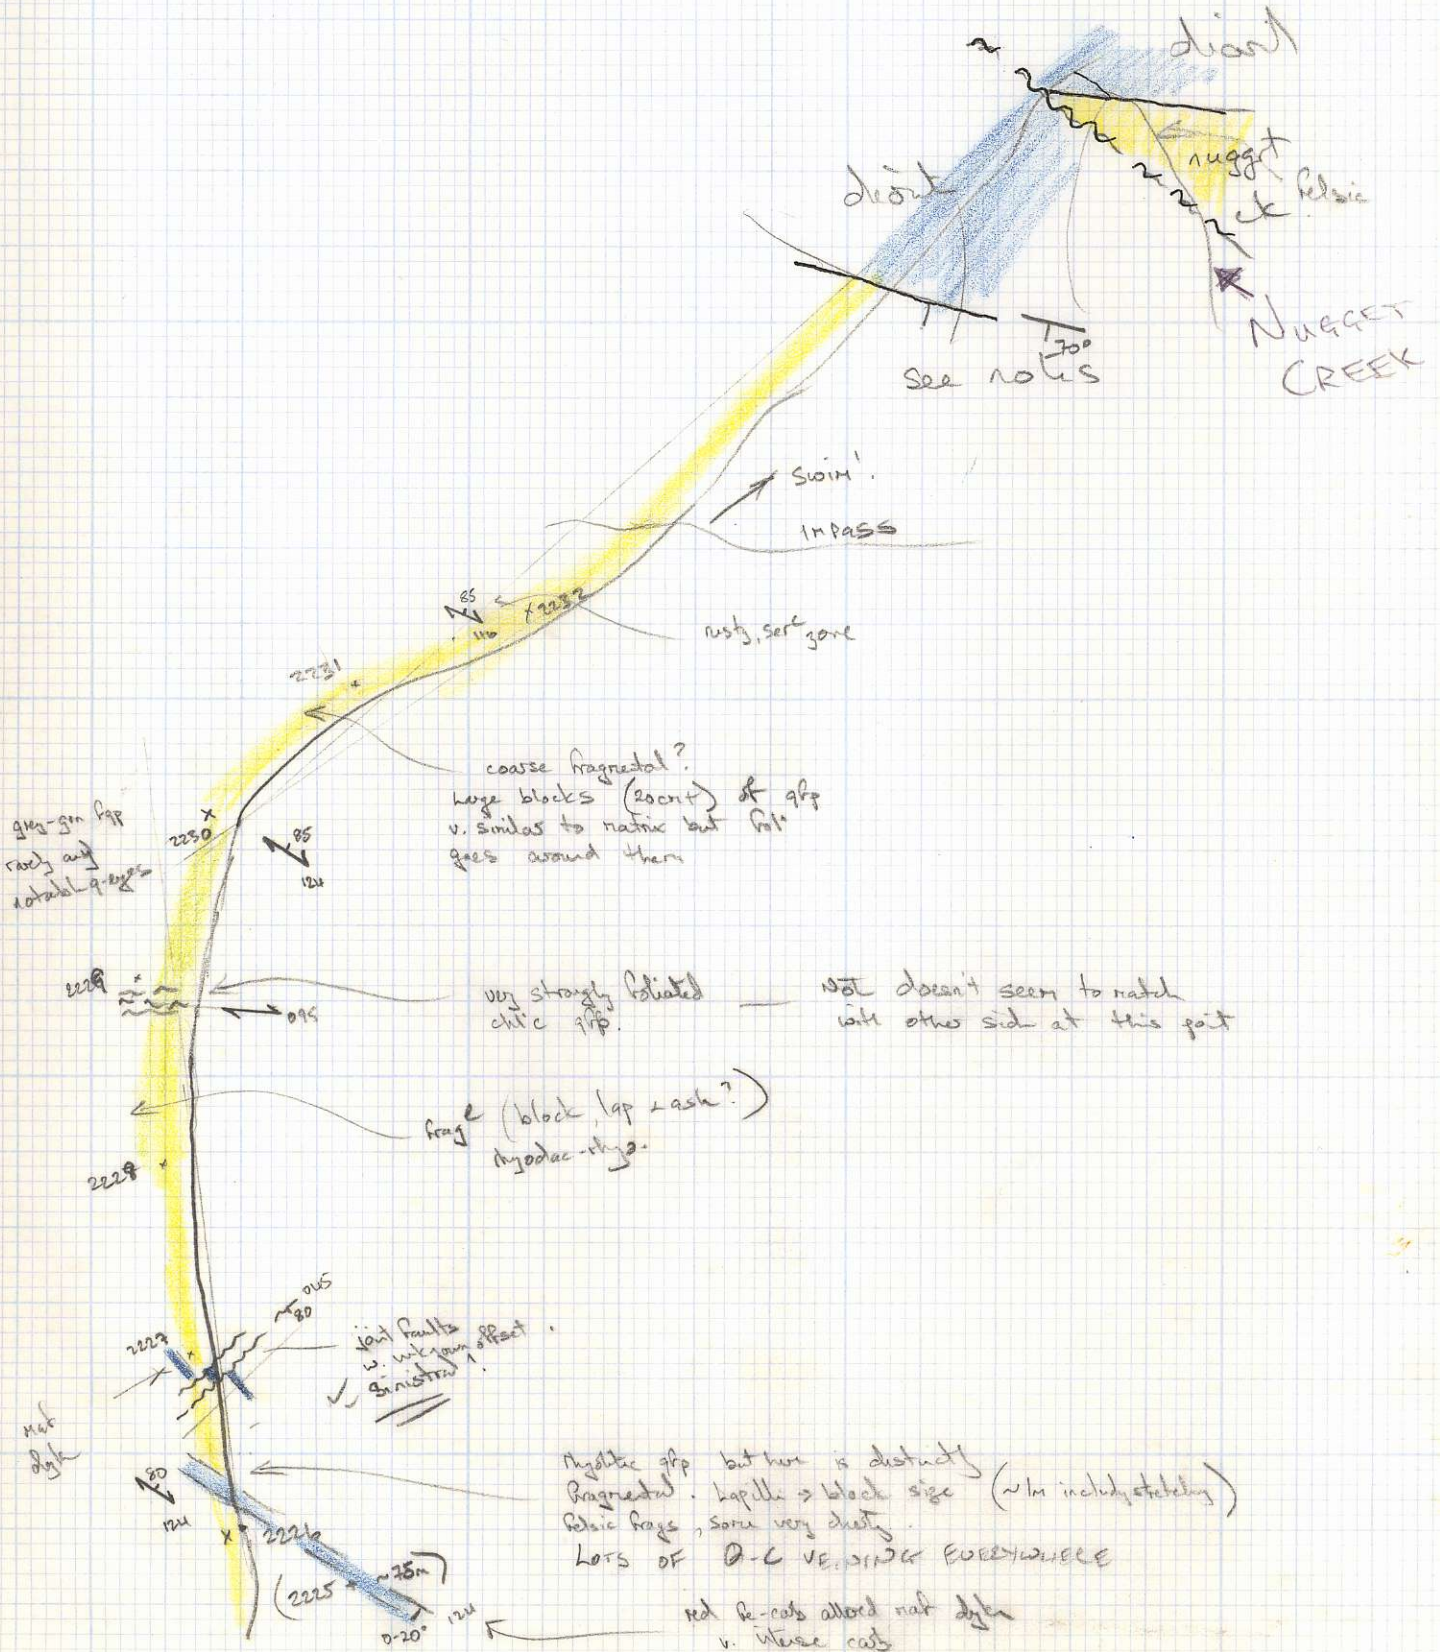 diorit
diorit
nuggt
ck
felsic
NUGGET
CREEK
70°
see notes
swim!
IMPASS
85
110
x 2232
rusty, serᶜ zone
2231
coarse fragmental?
Large blocks (20cm+) of qfp
v. similar to matrix but folⁿ
goes around them
grey-grn fqp
rarely any
notabl q-eyes
2230
85
124
2229
095
very strongly foliated
chlc qfp.
Not doesn't seem to match
with other side at this point
fragˡ (block, lap + ash?)
rhyodac-rhyo.
2228
045
80
2227
joint faults
w. unknown offset.
✓, sinistral!
maf
dyk
80
124
rhyolitic qfp but here is distinctly
fragmental. Lapilli → block size (~1m includg stretching)
felsic frags, some very cherty.
LOTS OF Q-C VEINING EVERYWHERE
x 2226
(2225 ~75m)
124
0-20°
red fe-carb altered maf dyke
v. intense carb